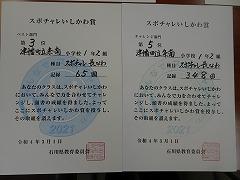 スポチャレいしかわ賞
ベスト部門
第3位
津幡町立条南小学校1年2組
種目 スポチャレ長なわ
記録 65回
あなたのクラスは、スポチャレいしかわ
において、みんなで力を合わせてチャレン
ジし、優秀の成績を得ました。よって
ここにスポチャレいしかわ賞を授与し、
その栄誉を讃えます。
2021
令和4年3月1日
石川県教育委員会
スポチャレいしかわ賞
チャレンジ部門
第5位
津幡町立条南小学校1年2組
種目 スポチャレ長なわ
記録 348回
あなたのクラスは、スポチャレいしかわ
において、みんなで力を合わせてチャレン
ジし、優秀の成績を得ました。よって
ここにスポチャレいしかわ賞を授与し、
その栄誉を讃えます。
2021
令和4年3月1日
石川県教育委員会